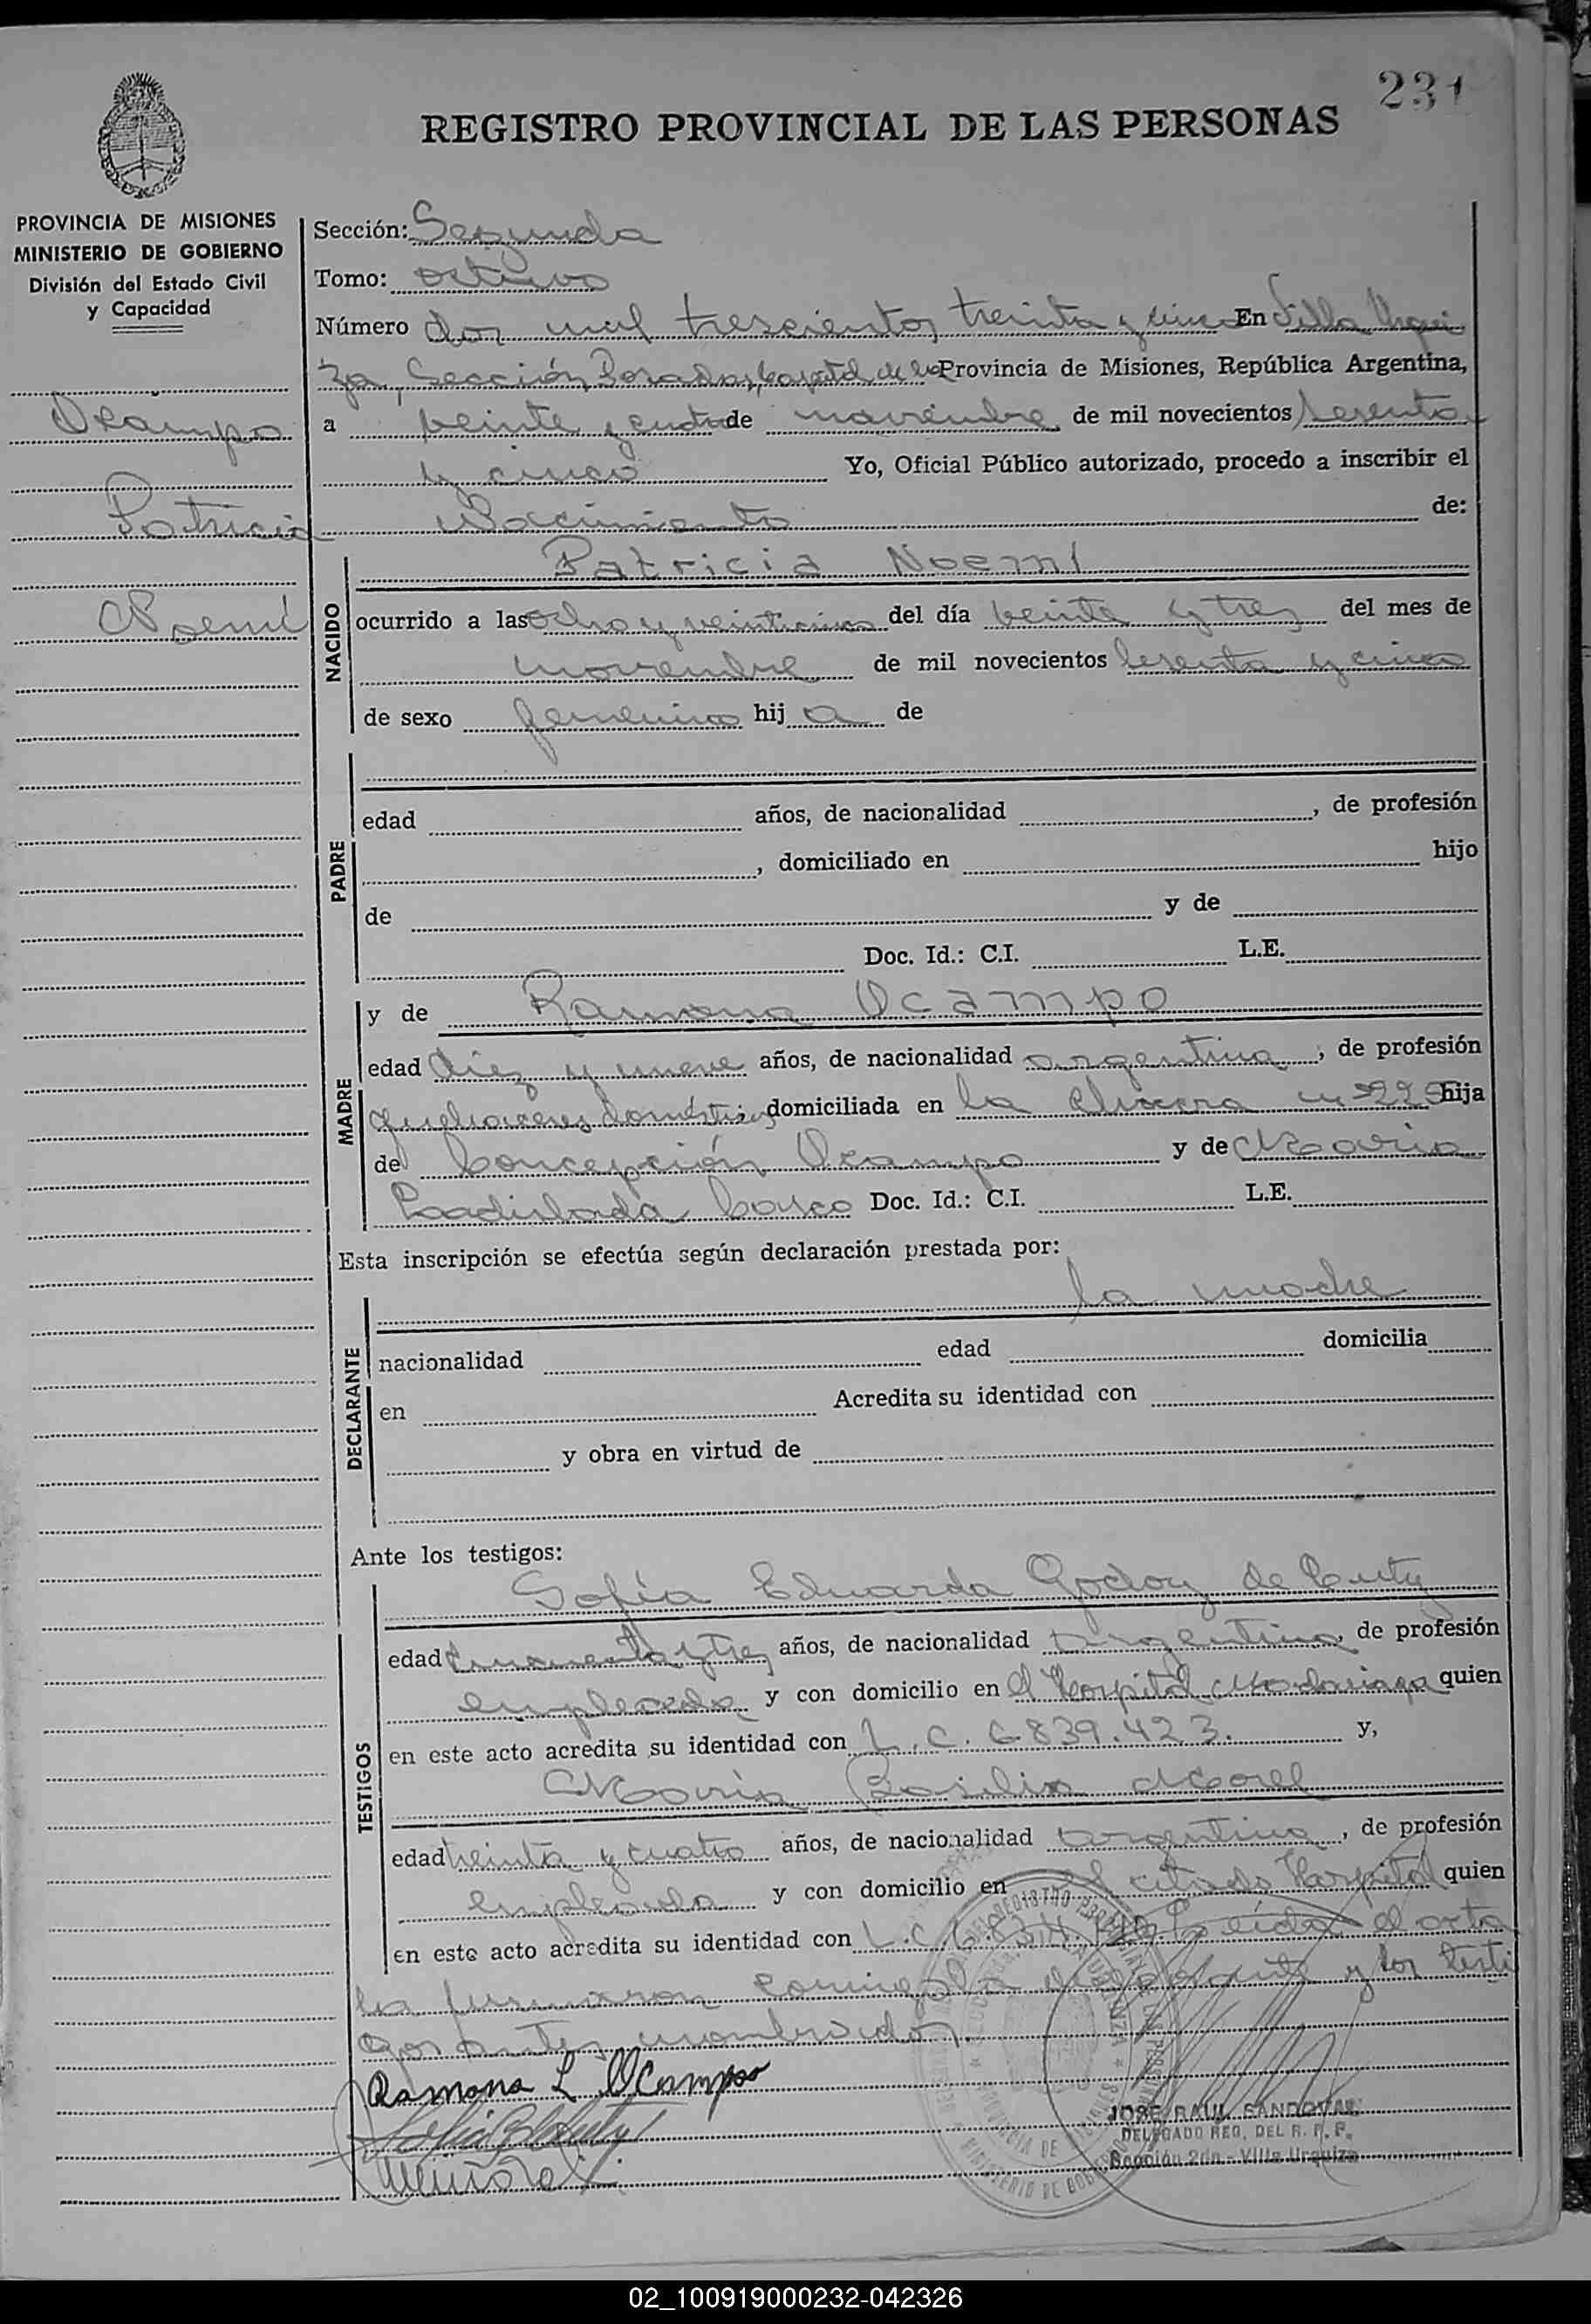 231
REGISTRO PROVINCIAL DE LAS PERSONAS
PROVINCIA DE MISIONES
MINISTERIO DE GOBIERNO
División del Estado Civil
y Capacidad
Ocampo
Patricia
Noemí
Sección: Segunda
Tomo: octavo
Número dos mil trescientos treinta y cinco En Villa Urqui
za, Sección Posadas, Capital de la Provincia de Misiones, República Argentina,
a veinte y cuatro de noviembre de mil novecientos sesenta
y cinco Yo, Oficial Público autorizado, procedo a inscribir el
Nacimiento de:
NACIDO
Patricia Noemí
ocurrido a las ocho y veinticinco del día veinte y tres del mes de
noviembre de mil novecientos sesenta y cinco
de sexo femenino hij a de
PADRE
edad años, de nacionalidad , de profesión
, domiciliado en hijo
de y de
Doc. Id.: C.I. L.E.
MADRE
y de Ramona Ocampo
edad diez y nueve años, de nacionalidad argentina, de profesión
quehaceres domésticos domiciliada en la Chacra hija
de Concepción Ocampo y de María
Ladislada Doc. Id.: C.I. L.E.
Esta inscripción se efectúa según declaración prestada por:
DECLARANTE
la madre
nacionalidad edad domicilia
en Acredita su identidad con
y obra en virtud de
Ante los testigos:
TESTIGOS
Sofía Eduarda Godoy de
edad cincuenta y tres años, de nacionalidad argentina, de profesión
empleada y con domicilio en el Hospital Madariaga quien
en este acto acredita su identidad con L.C. 6.839.423. y,
María Basilia Morel
edad treinta y cuatro años, de nacionalidad argentina, de profesión
empleada y con domicilio en el citado Hospital quien
en este acto acredita su identidad con L.C. Leída el acta
la firmaron conmigo la declarante y los testi
gos antes nombrados.
Ramona L Ocampo
JOSE RAUL SANDOVAL
DELEGADO REG. DEL R. P. P.
Sección 2da - Villa Urquiza
02_100919000232-042326